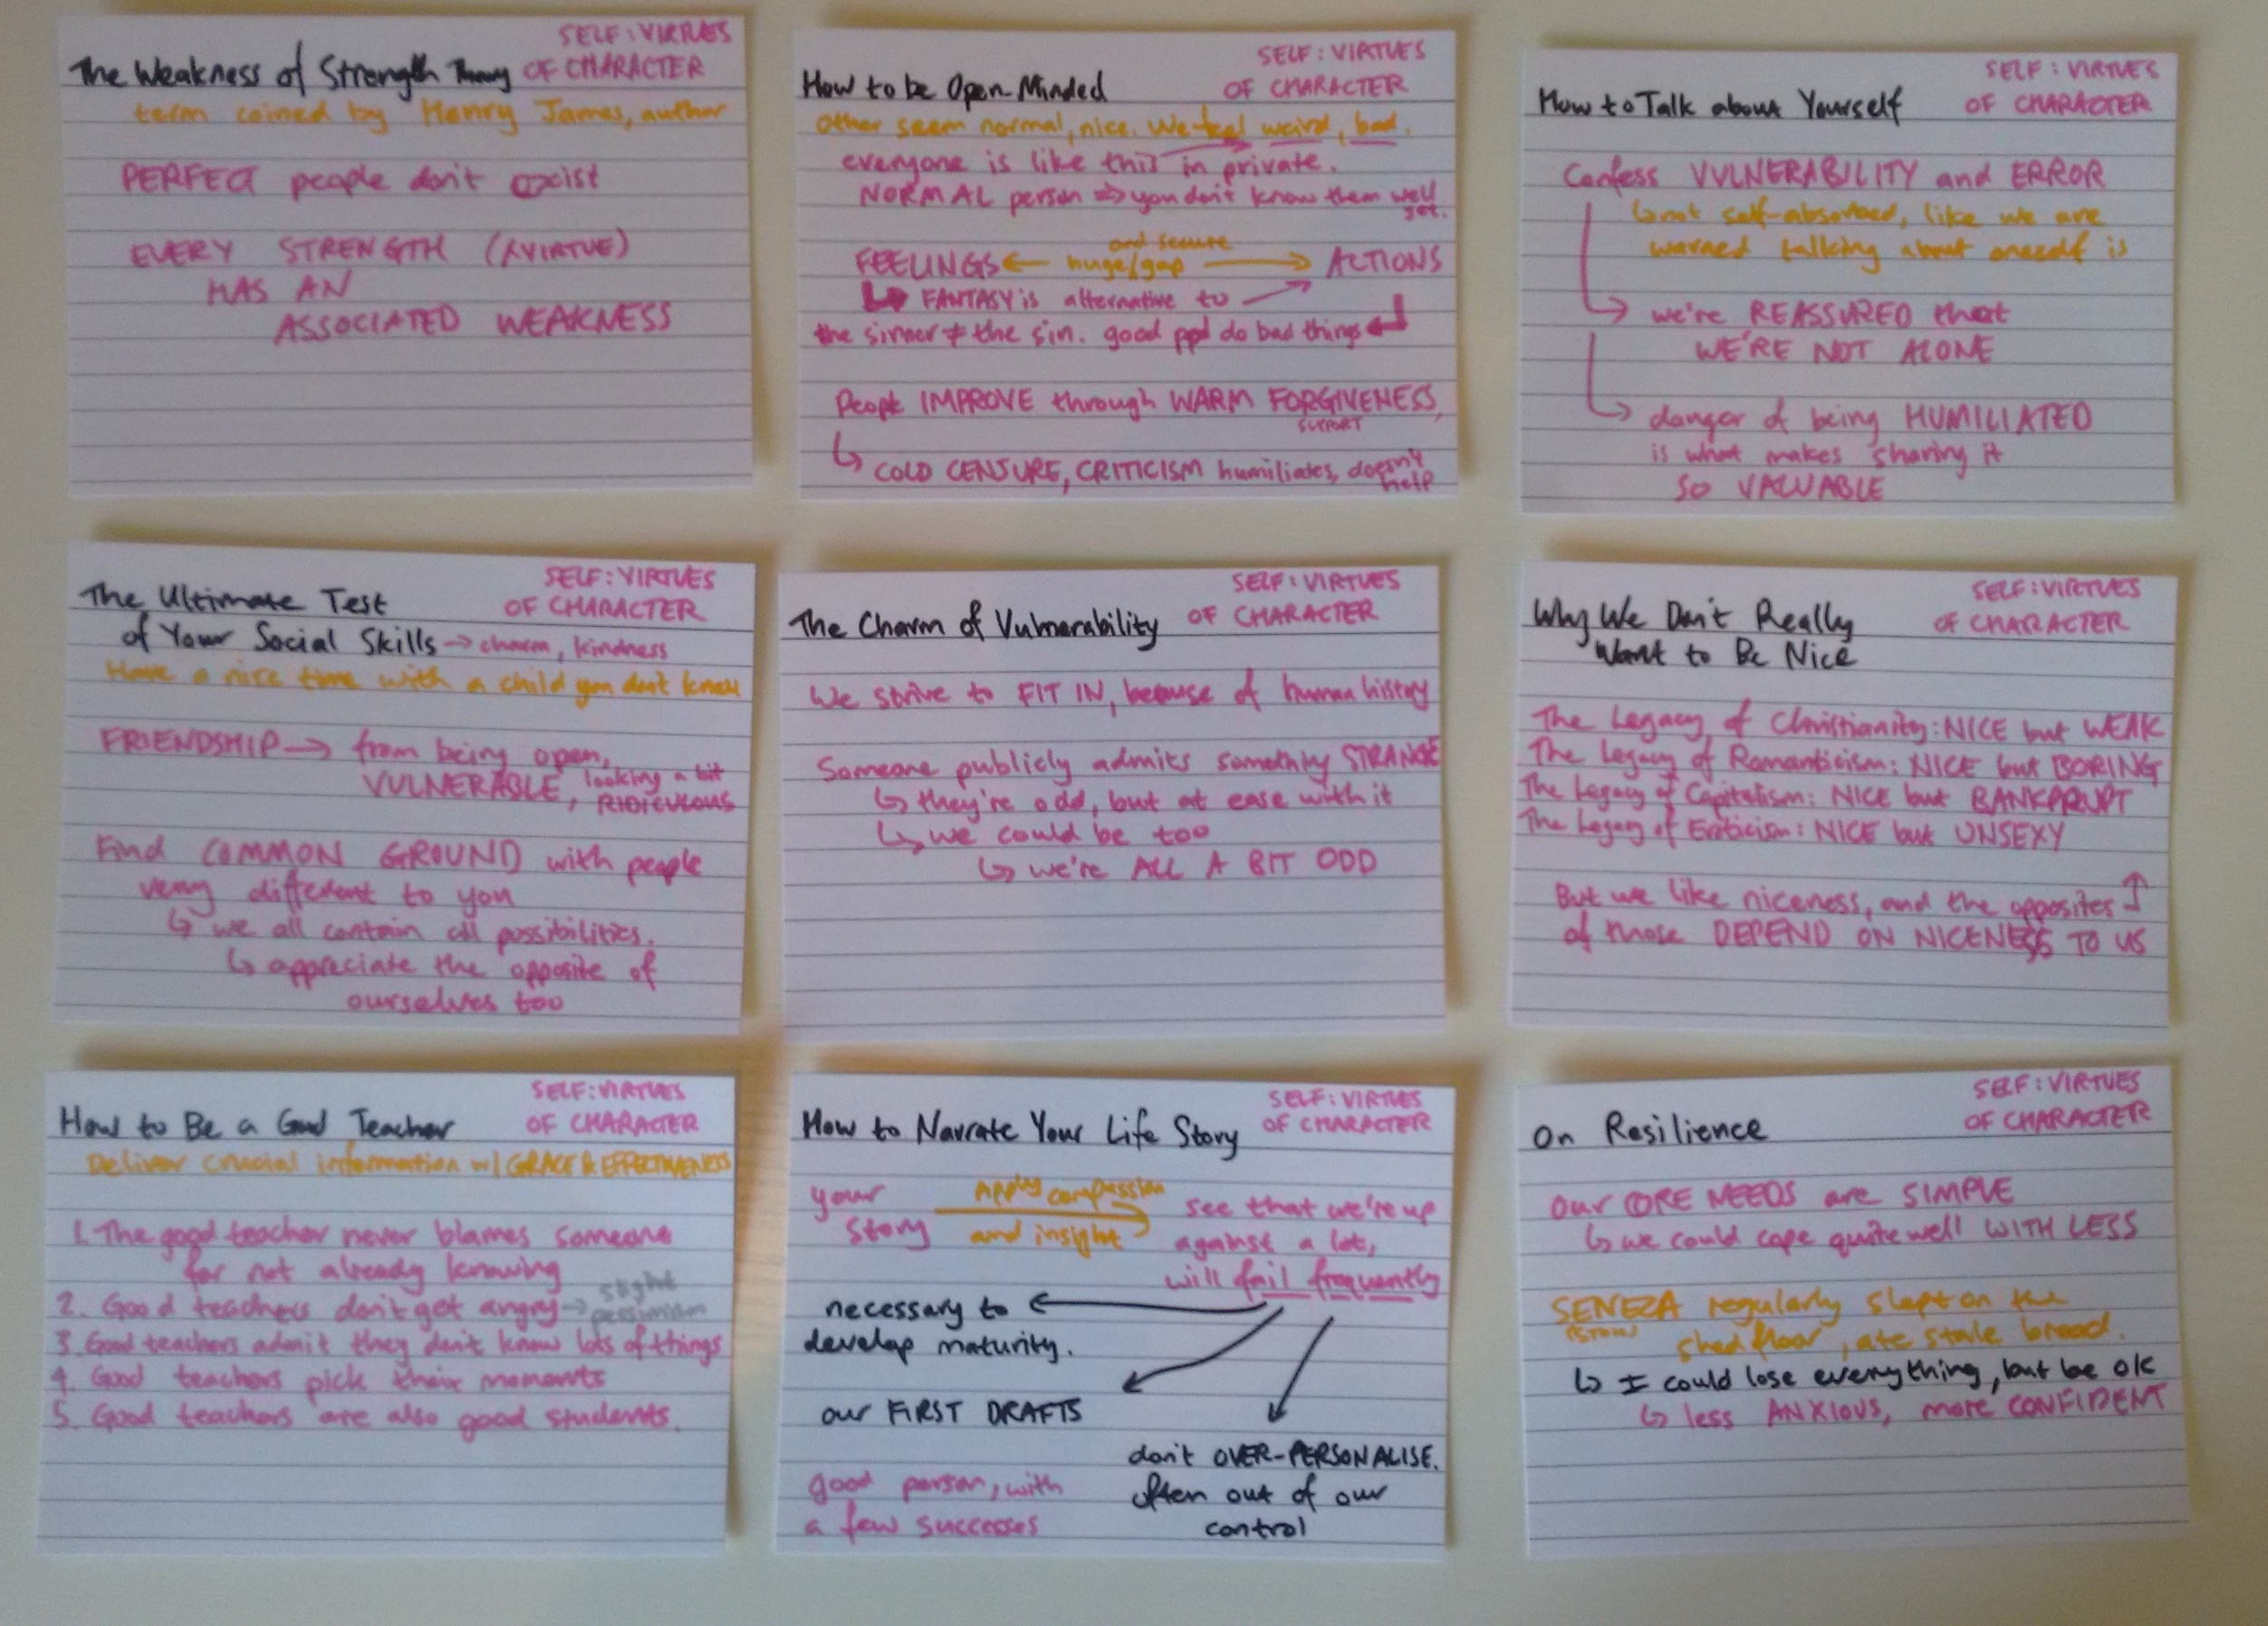 SELF: VIRTUES
The Weakness of Strength Theory OF CHARACTER
term coined by Henry James, author
PERFECT people don't exist
EVERY STRENGTH (/VIRTUE)
HAS AN
ASSOCIATED WEAKNESS
SELF: VIRTUES
How to be Open-Minded OF CHARACTER
Other seem normal, nice. We feel weird, bad.
everyone is like this in private.
NORMAL person => you don't know them well
yet.
and secure
FEELINGS <- huge/gap -> ACTIONS
↳ FANTASY is alternative to
the sinner ≠ the sin. good ppl do bad things
People IMPROVE through WARM FORGIVENESS,
SUPPORT
↳ COLD CENSURE, CRITICISM humiliates, doesn't
help
SELF: VIRTUES
How to Talk about Yourself OF CHARACTER
Confess VULNERABILITY and ERROR
↳ not self-absorbed, like we are
warned talking about oneself is
↳ we're REASSURED that
WE'RE NOT ALONE
↳ danger of being HUMILIATED
is what makes sharing it
SO VALUABLE
SELF: VIRTUES
The Ultimate Test OF CHARACTER
of Your Social Skills → charm, kindness
Have a nice time with a child you don't know
FRIENDSHIP → from being open,
VULNERABLE, looking a bit
RIDICULOUS
Find COMMON GROUND with people
very different to you
↳ we all contain all possibilities.
↳ appreciate the opposite of
ourselves too
SELF: VIRTUES
The Charm of Vulnerability OF CHARACTER
We strive to FIT IN, because of human history
Someone publicly admits something STRANGE
↳ they're odd, but at ease with it
↳ we could be too
↳ we're ALL A BIT ODD
SELF: VIRTUES
Why We Don't Really OF CHARACTER
Want to Be Nice
The Legacy of Christianity: NICE but WEAK
The Legacy of Romanticism: NICE but BORING
The Legacy of Capitalism: NICE but BANKPRUPT
The Legacy of Eroticism: NICE but UNSEXY
But we like niceness, and the opposites ↑
of those DEPEND ON NICENESS TO US
SELF: VIRTUES
How to Be a Good Teacher OF CHARACTER
Deliver crucial information w/ GRACE & EFFECTIVENESS
1. The good teacher never blames someone
for not already knowing
2. Good teachers don't get angry → slight
pessimism
3. Good teachers admit they don't know lots of things
4. Good teachers pick their moments
5. Good teachers are also good students.
SELF: VIRTUES
How to Narrate Your Life Story OF CHARACTER
your Apply compassion see that we're up
story and insight against a lot,
will fail frequently
necessary to
develop maturity.
our FIRST DRAFTS
don't OVER-PERSONALISE.
good person, with often out of our
a few successes control
SELF: VIRTUES
On Resilience OF CHARACTER
Our CORE NEEDS are SIMPLE
↳ we could cope quite well WITH LESS
SENECA regularly slept on the
shed floor, ate stale bread.
↳ I could lose everything, but be ok
↳ less ANXIOUS, more CONFIDENT